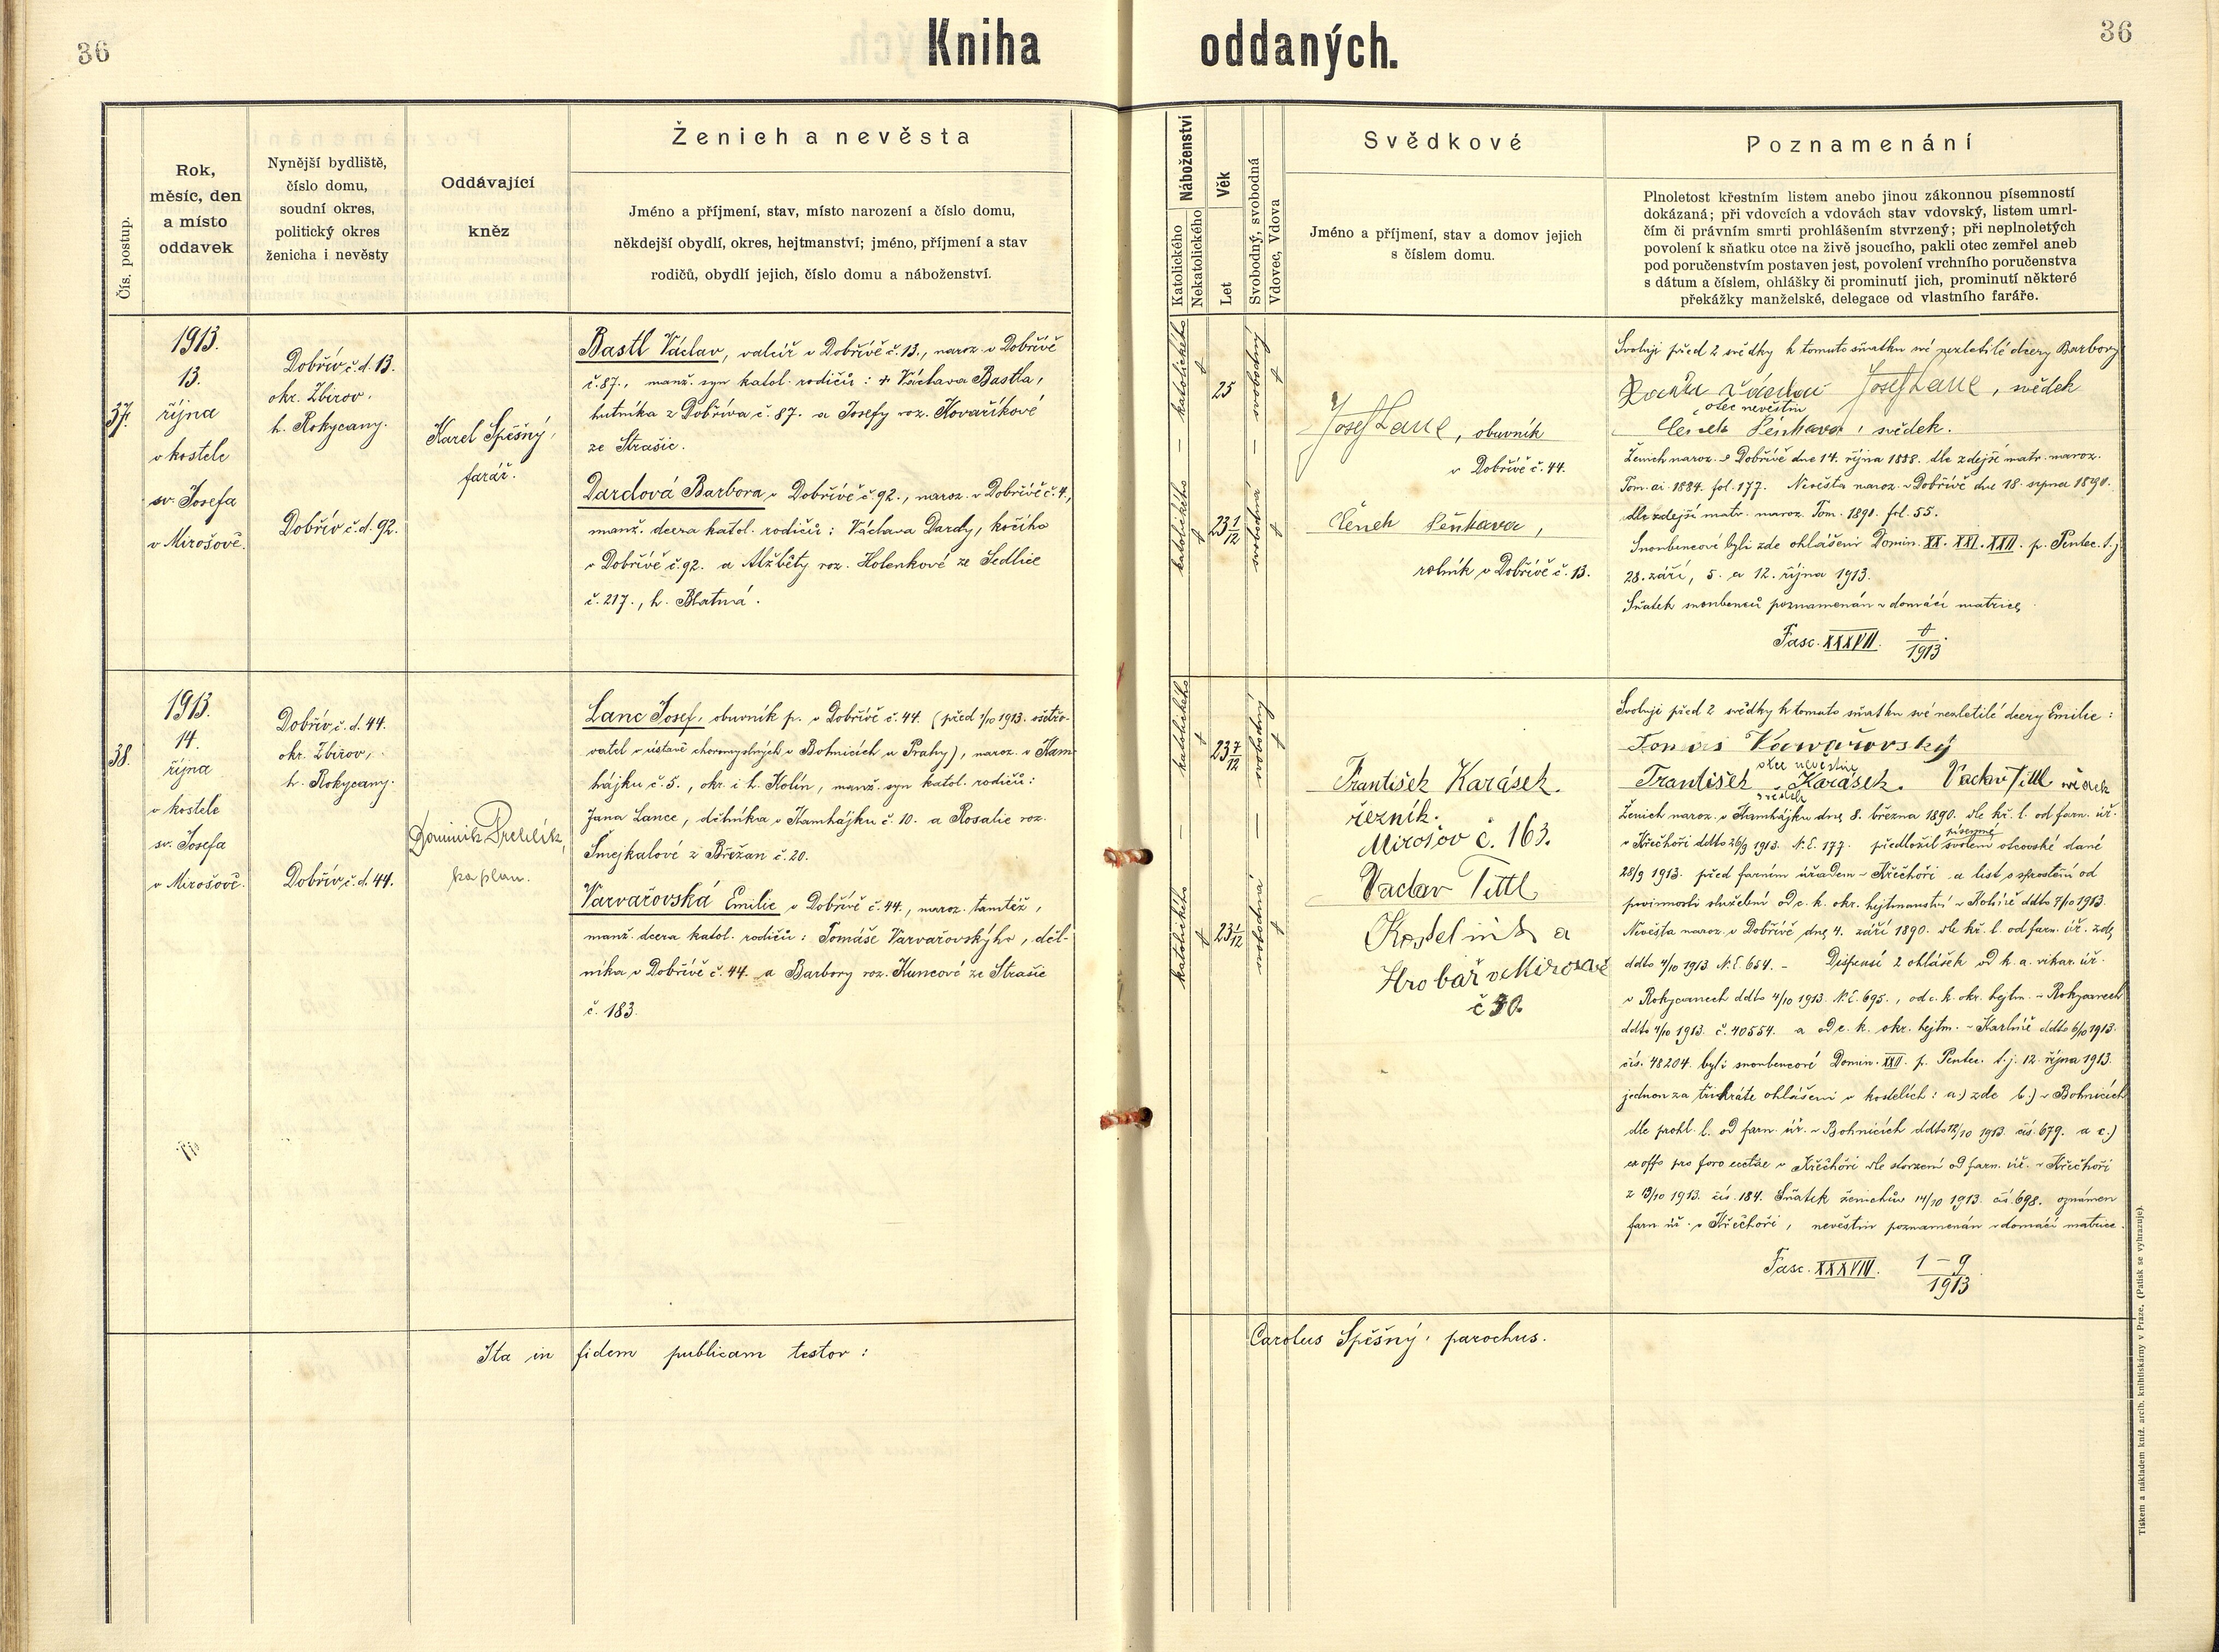 36
Kniha oddaných.
36
Čís. postup.
Rok,
měsíc, den
a místo
oddavek
Nynější bydliště,
číslo domu,
soudní okres,
politický okres
ženicha i nevěsty
Oddávající
kněz
Ženich a nevěsta
Jméno a příjmení, stav, místo narození a číslo domu,
někdejší obydlí, okres, hejtmanství; jméno, příjmení a stav
rodičů, obydlí jejich, číslo domu a náboženství.
Náboženství
Katolického
Nekatolického
Věk
Let
Svobodný, svobodná
Vdovec, Vdova
Svědkové
Jméno a příjmení, stav a domov jejich
s číslem domu.
Poznamenání
Plnoletost křestním listem anebo jinou zákonnou písemností
dokázaná; při vdovcích a vdovách stav vdovský, listem umrl-
čím či právním smrti prohlášením stvrzený; při neplnoletých
povolení k sňatku otce na živě jsoucího, pakli otec zemřel aneb
pod poručenstvím postaven jest, povolení vrchního poručenstva
s dátum a číslem, ohlášky či prominutí jich, prominutí některé
překážky manželské, delegace od vlastního faráře.
37.
1913.
13.
října
v kostele
sv. Josefa
v Mirošově.
Dobřív č. d. 13.
okr. Zbirov.
h. Rokycany.
Dobřív č. d. 92.
Karel Spěšný,
farář.
Bastl Václav, valcíř v Dobřívě č. 13., naroz. v Dobřívě
č. 87., manž. syn katol. rodičů: + Václava Bastla,
hutníka z Dobříva č. 87. a Josefy roz. Kovaříkové
ze Strašic.
Dardová Barbora v Dobřívě č. 92., naroz. v Dobřívě č. 4.,
manž. dcera katol. rodičů: Václava Dardy, kočího
v Dobřívě č. 92. a Alžběty roz. Holenkové ze Sedlice
č. 217., h. Blatná.
katolického
katolického
25
23 1/12
svobodný
svobodná
Josef Lanc, obuvník
v Dobřívě č. 44.
Čeněk Pěnkava,
rolník v Dobřívě č. 13.
Svoluji před 2 svědky k tomuto sňatku své nezletilé dcery Barbory
Václav Josef Lanc, svědek
otec nevěstin
Čeněk Pěnkava, svědek.
Ženich naroz. v Dobřívě dne 14. října 1888. dle zdejší matr. naroz.
Tom. ai. 1884. fol. 177. Nevěsta naroz. v Dobřívě dne 18. srpna 1890.
dle zdejší matr. naroz. Tom. 1890. fol. 55.
Snoubencové byli zde ohlášeni Domin. XX. XXI. XXII. p. Pentec. t. j.
28. září, 5. a 12. října 1913.
Sňatek snoubenců poznamenán v domácí matrice.
Fasc. XXXVII. 1913
38.
1913.
14.
října
v kostele
sv. Josefa
v Mirošově.
Dobřív č. d. 44.
okr. Zbirov,
h. Rokycany.
Dobřív č. d. 44.
Dominik
kaplan.
Lanc Josef, obuvník p. v Dobřívě č. 44. (před 1/10 1913. ošetřo-
vatel v ústavě choromyslných v Bohnicích u Prahy), naroz. v Kam-
hájku č. 5., okr. i h. Kolín, manž. syn katol. rodičů:
Jana Lance, dělníka v Kamhájku č. 10. a Rosalie roz.
Šmejkalové z Břežan č. 20.
Varvařovská Emilie v Dobřívě č. 44., naroz. tamtéž,
manž. dcera katol. rodičů: Tomáše Varvařovskýho, děl-
níka v Dobřívě č. 44. a Barbory roz. Kuncové ze Strašic
č. 183.
katolického
katolického
23 7/12
23 1/12
svobodný
svobodná
František Karásek.
řezník.
Mirošov č. 163.
Vaclav Tittl
Kostelník a
Hrobař v Mirošově
č 30.
Svoluji před 2 svědky k tomuto sňatku své nezletilé dcery Emilie:
Tomas Vawařovský
otec nevěstin
František Karásek. Vaclav Tittl svědek
svědek
Ženich naroz. v Kamhájku dne 8. března 1890. dle kř. l. od farn. úř.
v Křečhoři ddto 26/9 1913. N. E. 177. předložil písemné svolení otcovské dané
28/9 1913. před farním úřadem v Křečhoři a list o sproštění od
povinnosti služební od c. k. okr. hejtmanství v Kolíně ddto 7/10 1913.
Nevěsta naroz. v Dobřívě dne 4. září 1890. dle kř. l. od farn. úř. zde
ddto 4/10 1913. N. E. 654. - Dispensí 2 ohlášek od k. a. vikar. úř.
v Rokycanech ddto 4/10 1913. N. E. 695., od c. k. okr. hejtm. v Rokycanech
ddto 4/10 1913. č. 40554. a od c. k. okr. hejtm. v Karlíně ddto 6/10 1913.
čís. 48204. byli snoubencové Domin. XXII. p. Pentec. t. j. 12. října 1913.
jednou za třikráte ohlášeni v kostelích: a.) zde b.) v Bohnicích
dle prohl. l. od farn. úř. v Bohnicích ddto 12/10 1913. čís. 679. a c.)
ex offo pro foro v Křečhoři dle stvrzení od farn. úř. v Křečhoři
z 13/10 1913. čís. 184. Sňatek ženichův 14/10 1913. čís. 698. oznámen
farn. úř. v Křečhoři, nevěstin poznamenán v domácí matrice.
Fasc. XXXVIII. 1-9 1913
Ita in fidem publicam testor: Carolus Spěšný, parochus.
Tiskem a nákladem kníž. arcib. knihtiskárny v Praze. (Patisk se vyhrazuje).